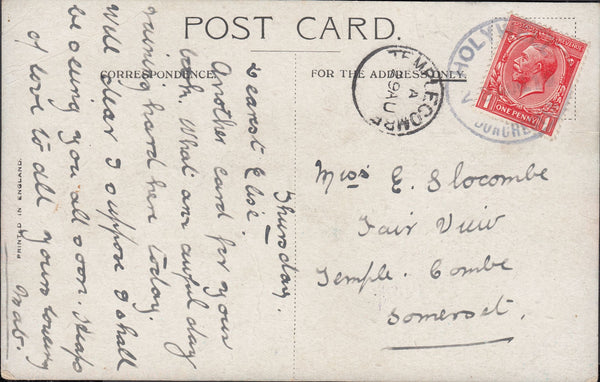 POST CARD.
CORRESPONDENCE.
FOR THE ADDRESS ONLY.
TEMPLECOMBE
A
AU
HOLY
POSTAGE
ONE PENNY
1
1
PRINTED IN ENGLAND.
Thursday.
Dearest Elsie.
Another card for your
book. What an awful day
raining hard here today.
Will clear I suppose I shall
be seeing you all soon. Heaps
of love to all yours loving
Mab.
Miss E. Slocombe
Fair View
Temple. Combe
Somerset.